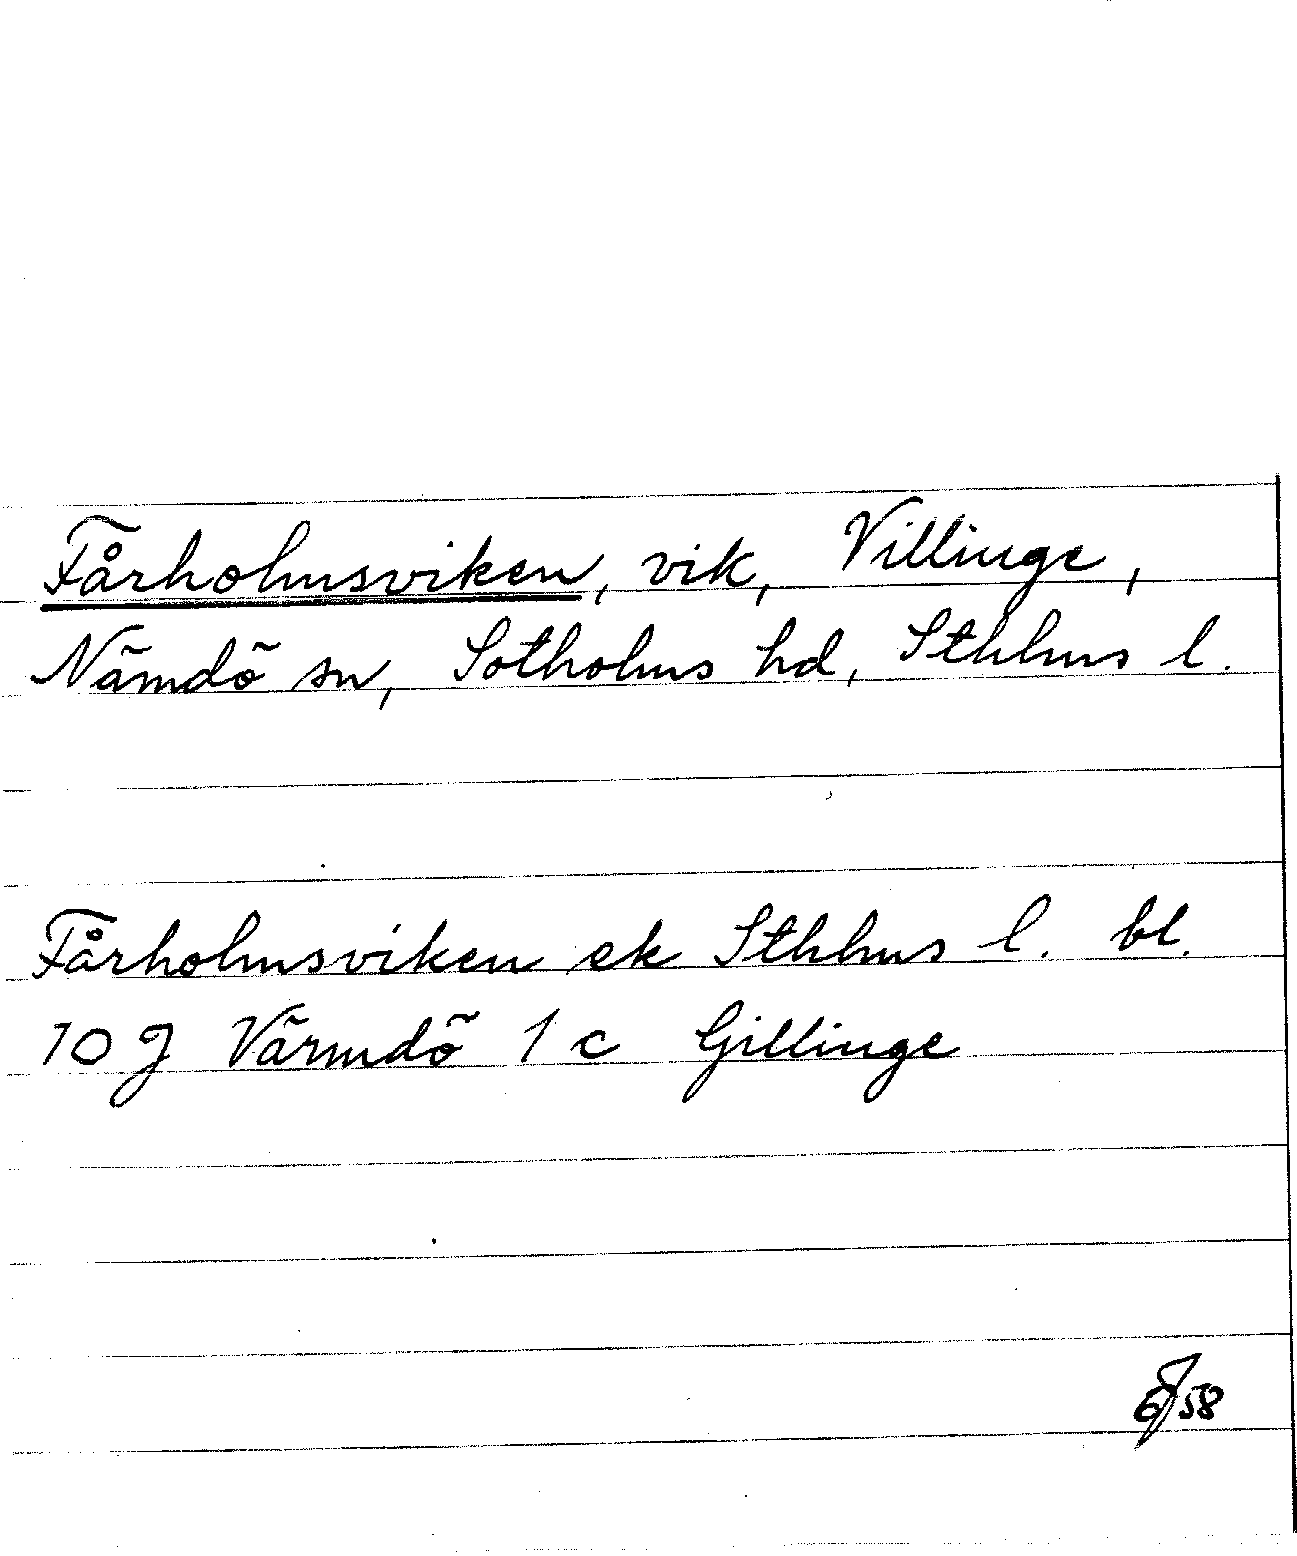 Fårholmsviken, vik, Villinge,
Nämdö sn, Sotholms hd, Sthlms l.
Fårholmsviken ek Sthlms l. bl.
10 J Värmdö 1 c Gillinge
58